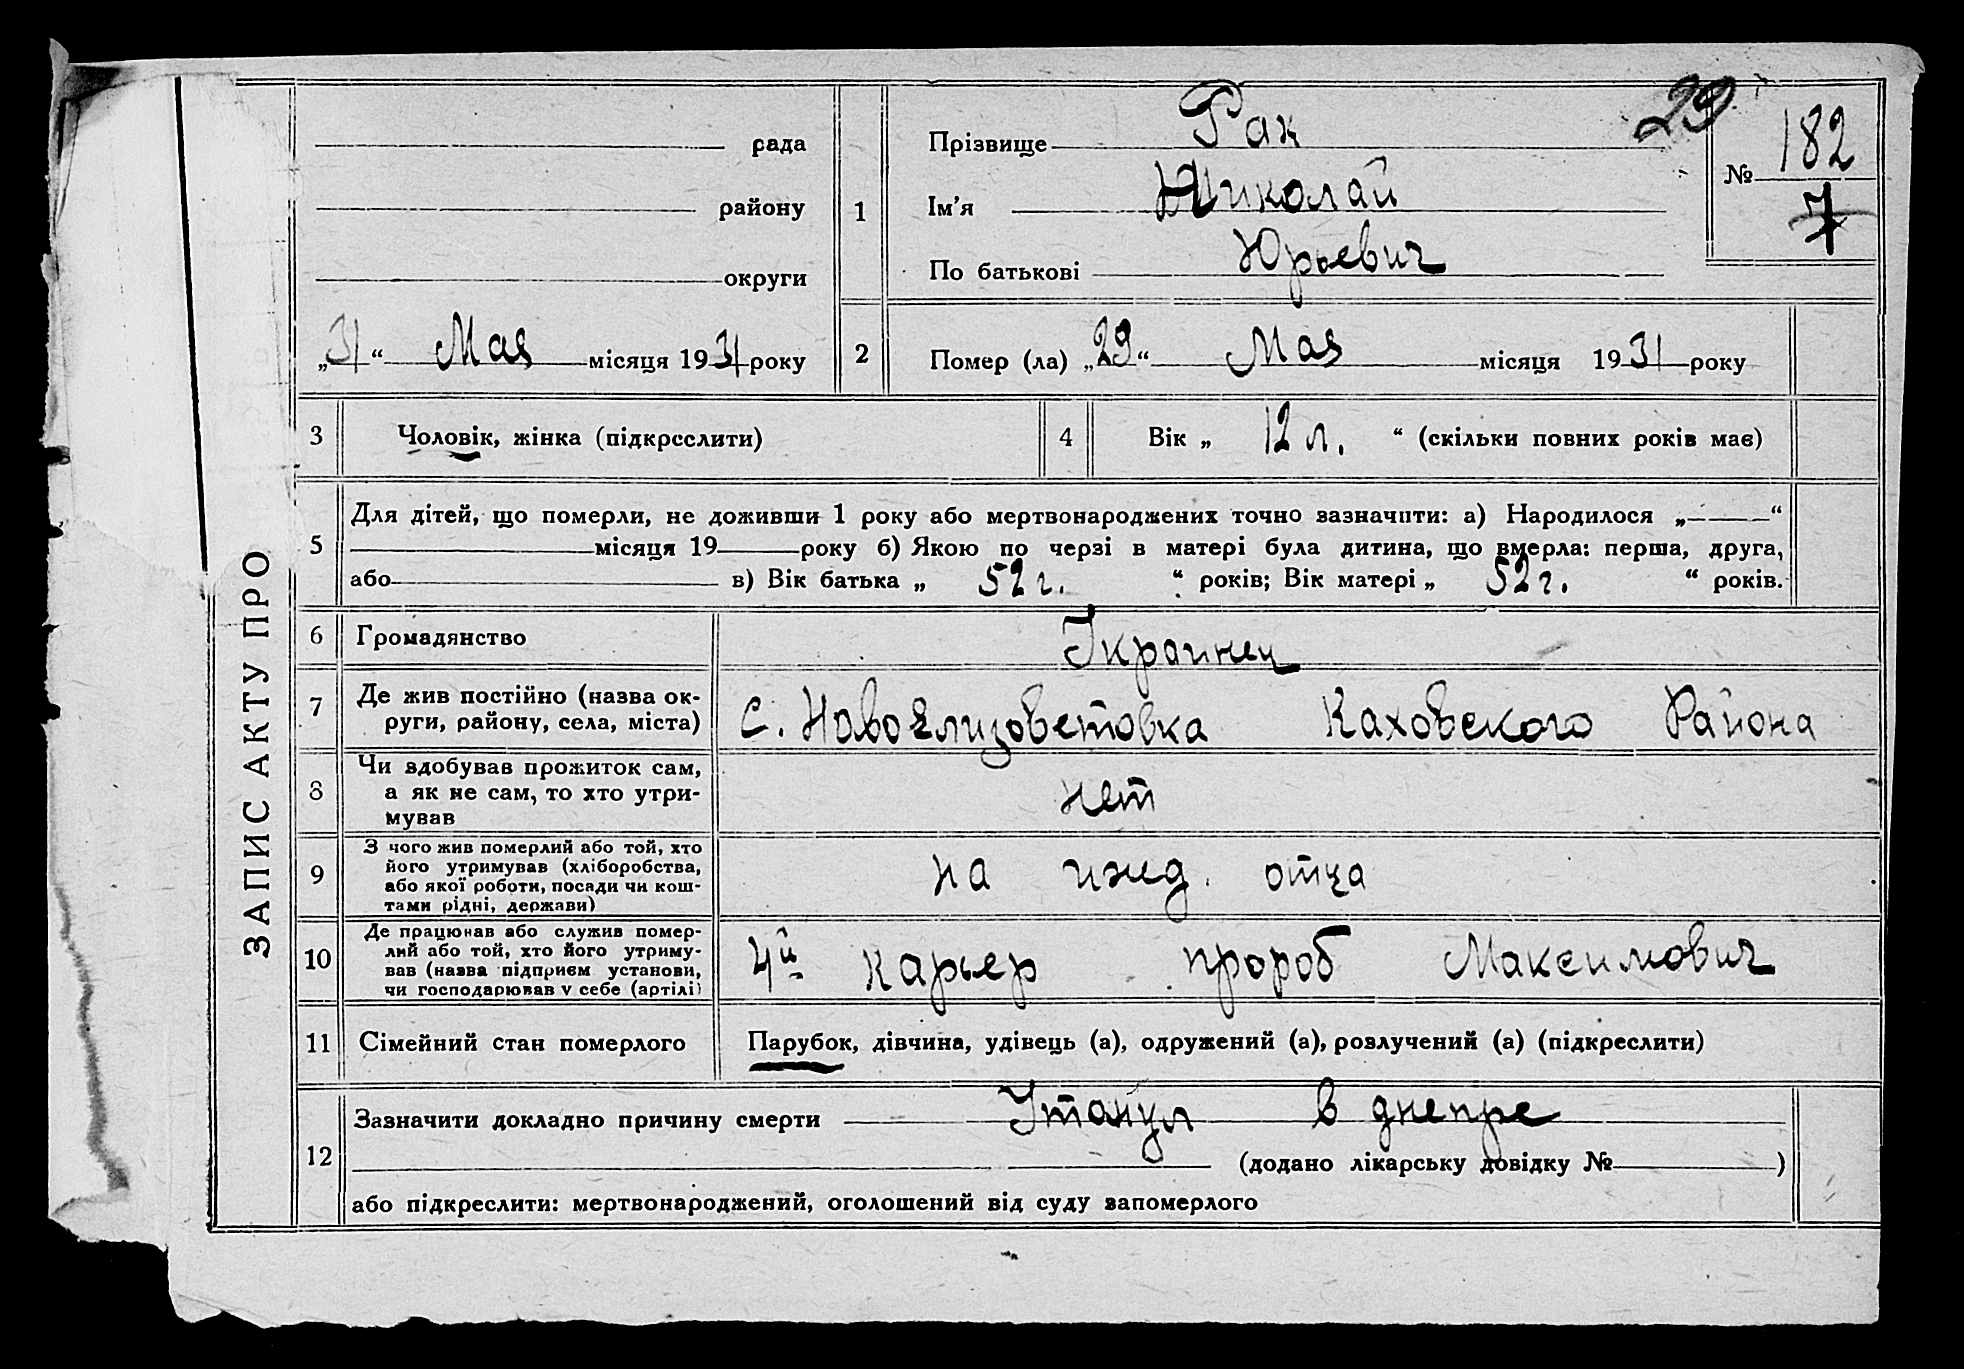 ЗАПИС АКТУ ПРО
29
№ 182
7
рада
району
округи
„31“ Мая місяця 1931 року
1
Прізвище Рак
Ім'я Николай
По батькові Юрьевич
2
Помер (ла) „29“ Мая місяця 1931 року
3 Чоловік, жінка (підкреслити)
4 Вік „ 12 л. “ (скільки повних років має)
5 Для дітей, що померли, не доживши 1 року або мертвонароджених точно зазначити: а) Народилося „ “
місяця 19 року б) Якою по черзі в матері була дитина, що вмерла: перша, друга,
або в) Вік батька „ 52 г. “ років; Вік матері „ 52 г. “ років.
6 Громадянство Украинец
7 Де жив постійно (назва ок-
руги, району, села, міста)
с. НовоЕлизоветовка Каховского Района
8 Чи здобував прожиток сам,
а як не сам, то хто утри-
мував
нет
9 З чого жив померлий або той, хто
його утримував (хліборобства,
або якої роботи, посади чи кош-
тами рідні, держави)
на ижд. отца
10 Де працював або служив помер-
лий або той, хто його утриму-
вав (назва підприєм установи,
чи господарював у себе (артілі)
4й карьер прораб Максимович
11 Сімейний стан померлого Парубок, дівчина, удівець (а), одружений (а), розлучений (а) (підкреслити)
12 Зазначити докладно причину смерти Утанул в днепре
(додано лікарську довідку № )
або підкреслити: мертвонароджений, оголошений від суду запомерлого